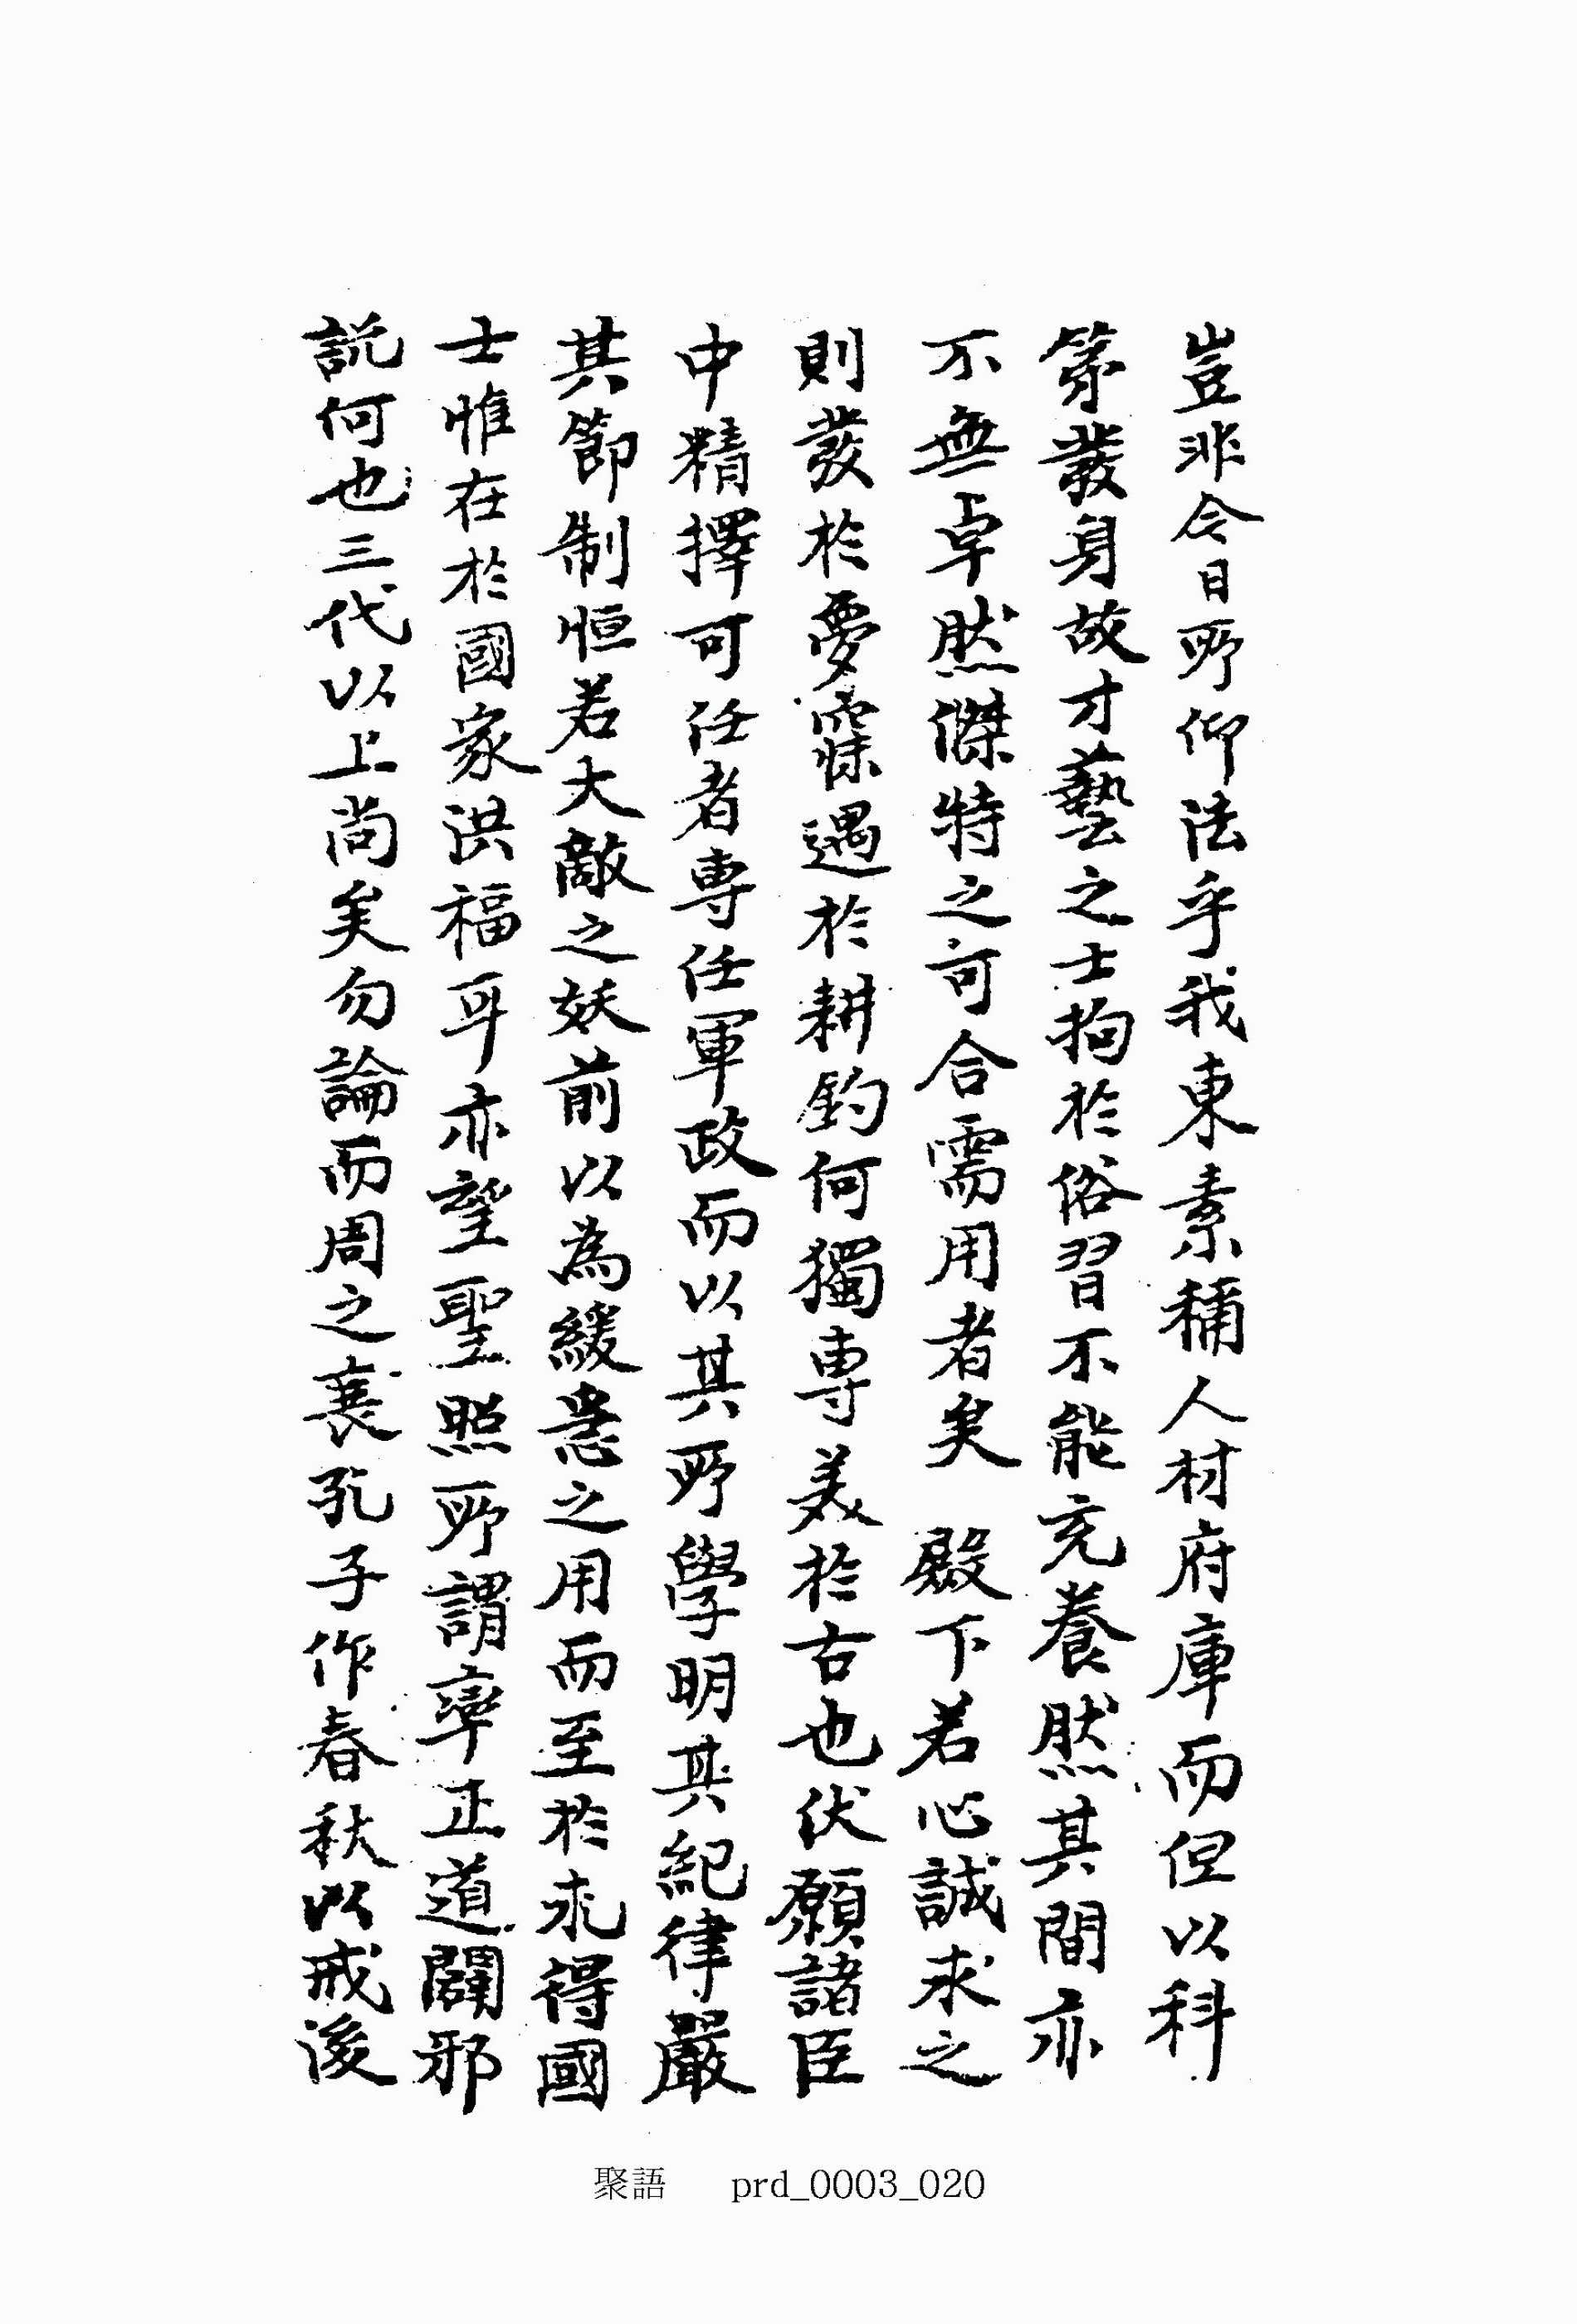 豈非今日所仰法乎我東素稱人材府庫而但以科
第發身故才藝之士拘於俗習不能充養然其間亦
不無卓然傑特之可合需用者矣 殿下若心誠求之
則發於夢寐遇於耕釣何獨專美於古也伏願諸臣
中精擇可任者專任軍政而以其所學明其紀律嚴
其節制恒若大敵之在前以為緩急之用而至於求得國
士惟在於國家洪福耳亦望聖照所謂率正道闢邪
説何也三代以上尚矣勿論而周之衰孔子作春秋以戒後
聚語 prd_0003_020